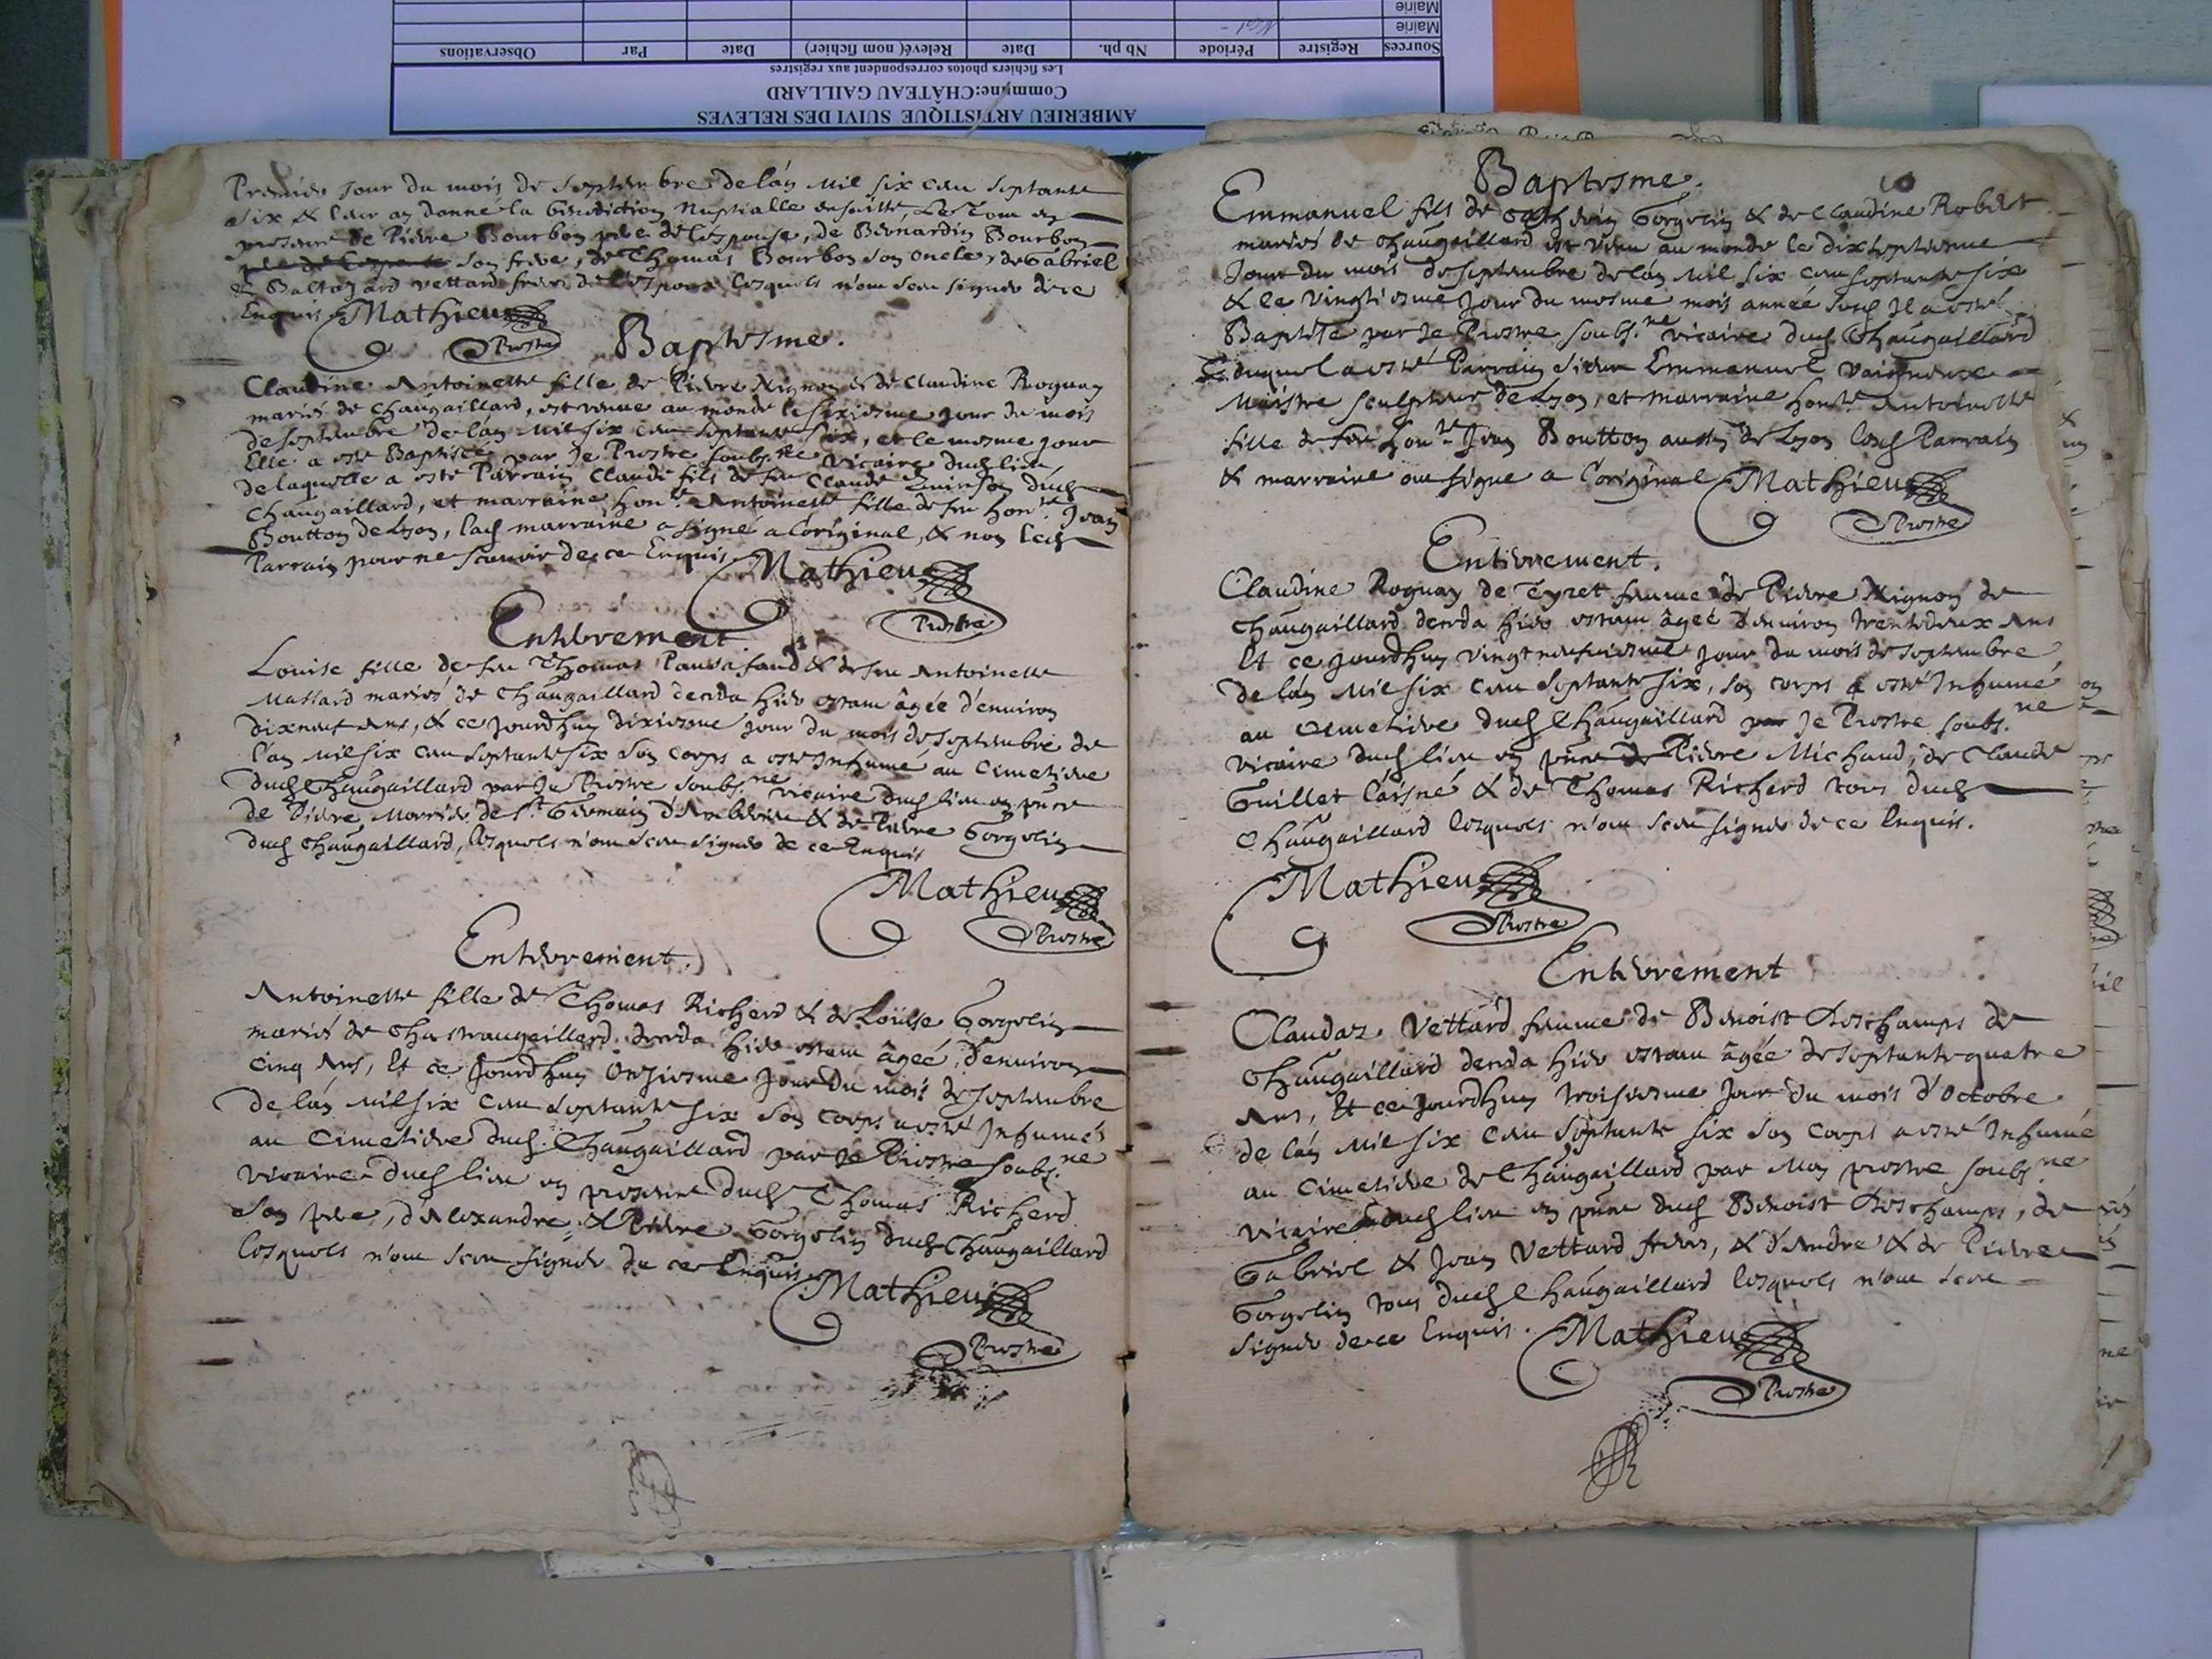 AMBERIEU ARTISTIQUE SUIVI DES RELEVES
Commune: CHÂTEAU GAILLARD
Les fichiers photos correspondent aux registres
Sources Registre Période Nb ph. Date Relevé( nom fichier) Date Par Observations
Mairie
Mairie
Premier jour du mois de Septembre de l'an Mil six cens septante
six & leur ay donné la benediction Nuptialle ensuitte, Le Tout en
presence de Pierre Bourbon pere de l'espouse, de Bernardin Bourbon
son frere, de Thomas Bourbon son oncle, de Gabriel
& Baltazard vettard freres de l'espoux lesquels n'ont sceu signer de ce
Enquis Mathieu
Prestre
Baptesme.
Claudine Antoinette fille de Pierre Nignon & de Claudine Roguay
mariés de Chaugaillard, est venue au monde le sixiesme jour du mois
de septembre de l'an Mil six cens septante six, et le mesme jour
Elle a esté Baptisée par Je Prestre soubs.né Vicaire dud lieu,
de laquelle a esté Parrain Claude fils de feu Claude Quinson dud
Chaugaillard, et marraine hon.te Antoinette fille de feu hon.te Jean
Boutton de Lyon, lad marraine a signé a l'original, & non led
Parrain pour ne scavoir de ce Enquis Mathieu
Prestre
Enterrement
Louise fille de feu Thomas Pansafaud & de feu Antoinette
Massard mariés de Chaugaillard deceda hier estant âgée d'environ
dixneuf ans, & ce jourdhuy dixiesme jour du mois de septembre de
l'an Mil six cens septante six son corps a esté Inhumé au Cimetiere
dud Chaugaillard par Je Prestre soubs.né vicaire dud lieu en pñce
de Pierre Morrier de St Germain d'Amberieu & de Pierre Gorgelin
dud Chaugaillard, lesquels n'ont sceu signer de ce Enquis
Mathieu
Prestre
Enterrement.
Antoinette fille de Thomas Richerd & de Loüise Gorgelin
mariés de Chastraugaillard deceda hier estant âgée d'environ
cinq ans, Et ce Jourdhuy Onziesme Jour Du mois de septembre
de l'an Mil six cens septante six son corps a esté Inhumé
au Cimetiere dud Chaugaillard par Je Prestre soubs.né
Vicaire dud lieu en presence dud Thomas Richerd
son pere, d'Alexandre & Pierre Gorgelin dud Chaugaillard
lesquels n'ont sceu signer de ce Enquis Mathieu
Prestre
10
Baptesme.
Emmanuel fils de Gorgelin & de Claudine Robert
mariés de Chaugaillard est venu au monde le dixseptiesme
Jour du mois de septembre de l'an Mil six cens septante six
& le vingtiesme Jour du mesme mois année susd Il a esté
Baptisé par Je Prestre soubs.né vicaire dud Chaugaillard
duquel a esté Parrain sieur Emmanuel
Maistre sculpteur de Lyon, et marraine hon.te Antoinette
fille de feu hon.te Jean Boutton aussy de Lyon lesd Parrain
& marraine ont signé a l'original Mathieu
Prestre
Enterrement.
Claudine Roguay de Tyret femme de Pierre Nignon de
Chaugaillard deceda hier estant âgée d'environ trentedeux ans
Et ce jourdhuy vingt neufviesme jour du mois de septembre
de l'an Mil six cens septante six, son corps a esté Inhumé
au Cemetiere dud Chaugaillard par Je Prestre soubs.né
vicaire dud lieu en pñce de Pierre Michaud, de Claude
Guillet l'aisné & de Thomas Richerd tous dud
Chaugaillard lesquels n'ont sceu signer de ce Enquis.
Mathieu
Prestre
Enterrement
Claudaz Vettard femme de Benoist Deschamps de
Chaugaillard deceda hier estant âgée de septante quatre
ans, Et ce Jourdhuy troisiesme Jour du mois d'Octobre
de l'an Mil six cens septante six son corps a esté Inhumé
au Cimetiere de Chaugaillard par Moy prestre soubs.né
Vicaire dud lieu en pñce dud Benoist Deschamps, de
Gabriel & Jean Vettard freres, & d'Andre & de Pierre
Gorgelin tous dud Chaugaillard lesquels n'ont sceu
signer de ce Enquis. Mathieu
Prestre